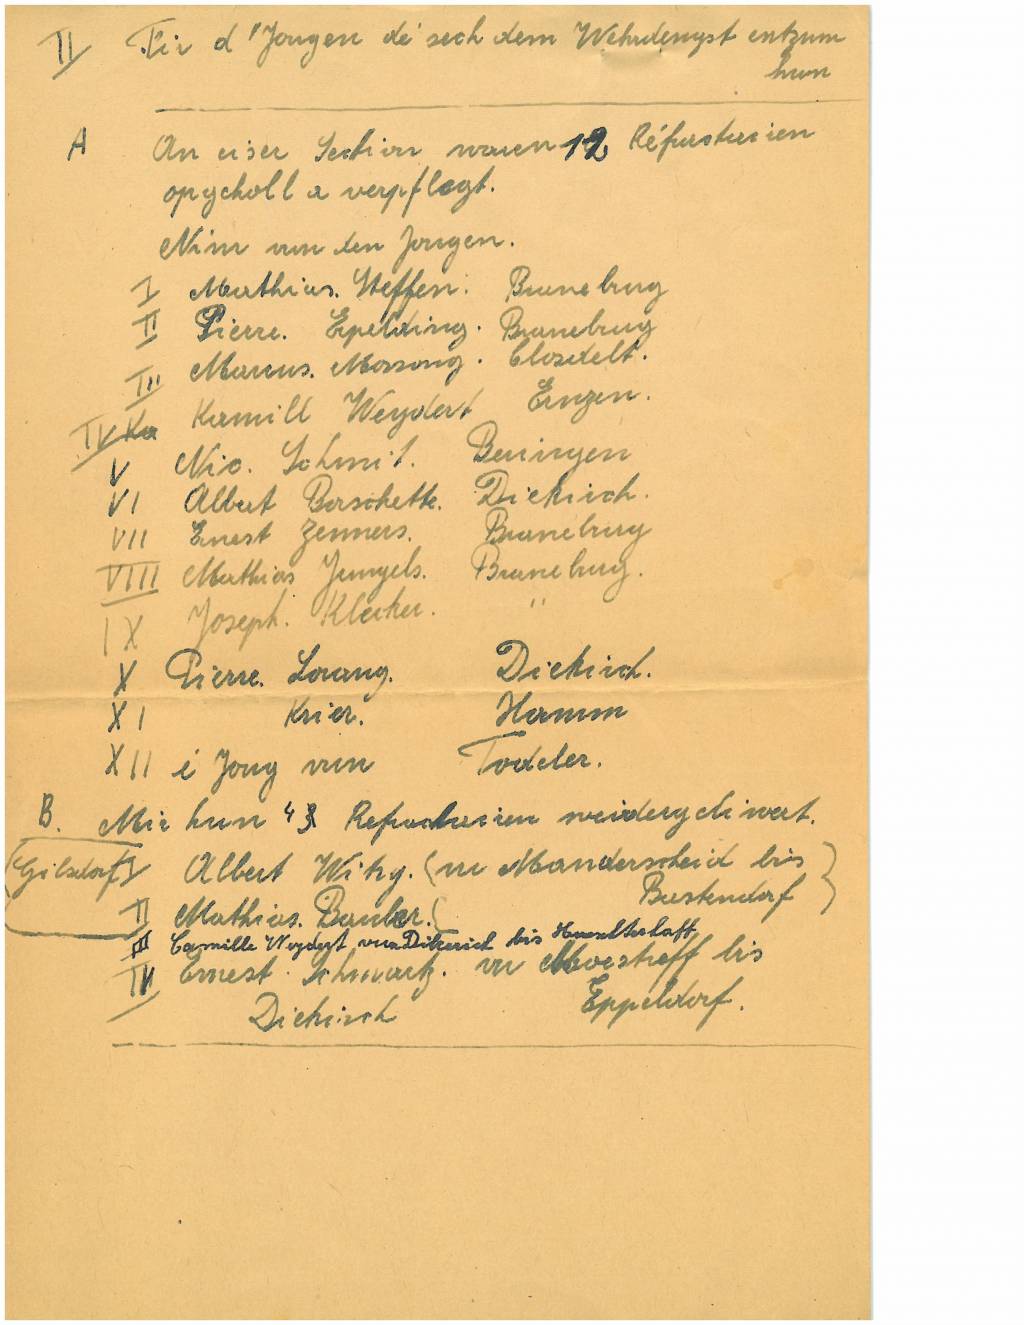 II Fir d'Jongen dé sech dem Wehrdengst entzun
hun
A An eiser Section waren 12 Réfractarien
opgeholl a verpflegt.
Nim vun den Jongen.
I Mathias. Steffen. Braneburg
II Pierre. Erpelding. Braneburg
III Marcus. Mossong. Closdelt.
IV Kamill Weydert Ernzen.
V Nic. Schmit. Beningen
VI Albert Borschette. Diekirch.
VII Ernest Zenners. Braneburg
VIII Mathias Jungels. Braneburg.
IX Joseph. Klecker. "
X Pierre. Lorang. Diekirch.
XI Krier. Hamm
XII é Jong vun Todeler.
B. Mir hun 4 Refractarien weidergeliwert.
(Gilsdorf) I Albert Witry. (vu Manderscheid bis
Bastendorf)
II Mathias. Bauler.
III Camille Weydert vun Dikrich bis Haeselterlaff
IV Ernest. Schwartz. vu Moestroff bis
Diekirch Eppeldorf.